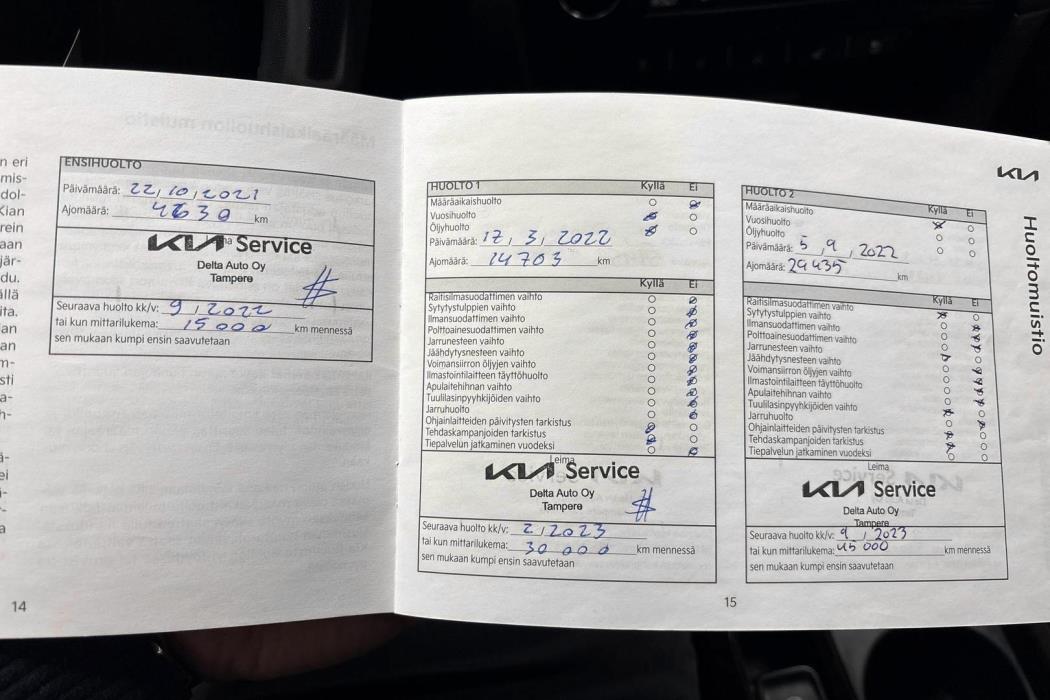 n eri
mis-
dol-
Kian
rein
aan
jär-
du.
ällä
ita.
an
an
m-
sti
a-
n-
ä-
ei
i-
a
ENSIHUOLTO
Päivämäärä: 22, 10, 2021
Ajomäärä: 4630 km
KIA Service
Delta Auto Oy
Tampere
Seuraava huolto kk/v: 9, 2022
tai kun mittarilukema: 15000 km mennessä
sen mukaan kumpi ensin saavutetaan
14
HUOLTO 1 Kyllä Ei
Määräaikaishuolto
Vuosihuolto
Öljyhuolto
Päivämäärä: 17, 3, 2022
Ajomäärä: 14703 km
Kyllä Ei
Raitisilmasuodattimen vaihto
Sytytystulppien vaihto
Ilmansuodattimen vaihto
Polttoainesuodattimen vaihto
Jarrunesteen vaihto
Jäähdytysnesteen vaihto
Voimansiirron öljyjen vaihto
Ilmastointilaitteen täyttöhuolto
Apulaitehihnan vaihto
Tuulilasinpyyhkijöiden vaihto
Jarruhuolto
Ohjainlaitteiden päivitysten tarkistus
Tehdaskampanjoiden tarkistus
Tiepalvelun jatkaminen vuodeksi
Leima
KIA Service
Delta Auto Oy
Tampere
Seuraava huolto kk/v: 2, 2023
tai kun mittarilukema: 30 000 km mennessä
sen mukaan kumpi ensin saavutetaan
15
KIA
Huoltomuistio
HUOLTO 2 Kyllä Ei
Määräaikaishuolto
Vuosihuolto
Öljyhuolto
Päivämäärä: 5, 9, 2022
Ajomäärä: 29435 km
Kyllä Ei
Raitisilmasuodattimen vaihto
Sytytystulppien vaihto
Ilmansuodattimen vaihto
Polttoainesuodattimen vaihto
Jarrunesteen vaihto
Jäähdytysnesteen vaihto
Voimansiirron öljyjen vaihto
Ilmastointilaitteen täyttöhuolto
Apulaitehihnan vaihto
Tuulilasinpyyhkijöiden vaihto
Jarruhuolto
Ohjainlaitteiden päivitysten tarkistus
Tehdaskampanjoiden tarkistus
Tiepalvelun jatkaminen vuodeksi
Leima
KIA Service
Delta Auto Oy
Tampere
Seuraava huolto kk/v: 9, 2023
tai kun mittarilukema: 45 000 km mennessä
sen mukaan kumpi ensin saavutetaan